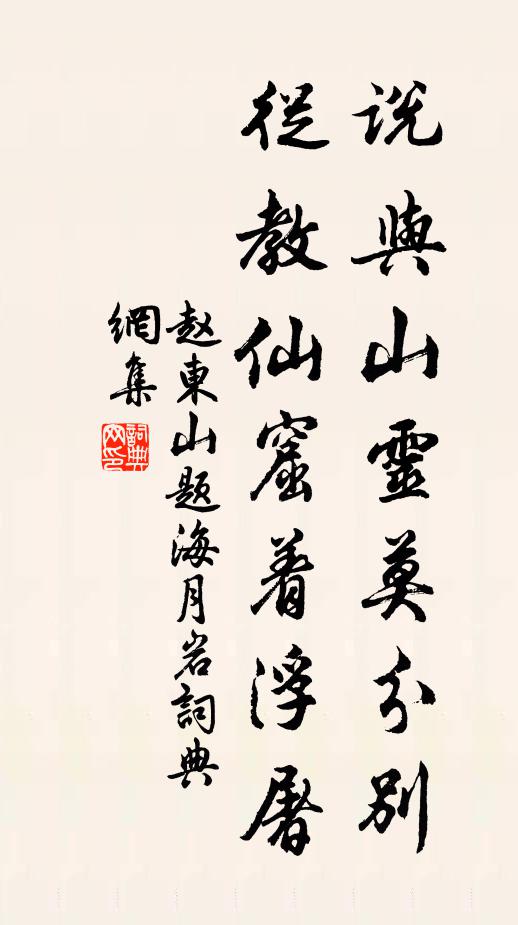 説與山靈莫分別
從教仙窟着浮屠
赵東山题海月岩詞典
網集
詞典
网印